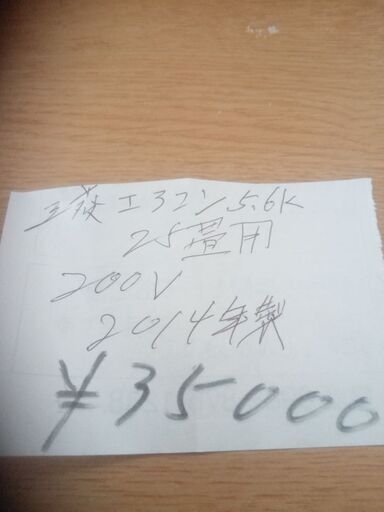 三菱エアコン5.6K
25畳用
200V
2014年製
¥35000